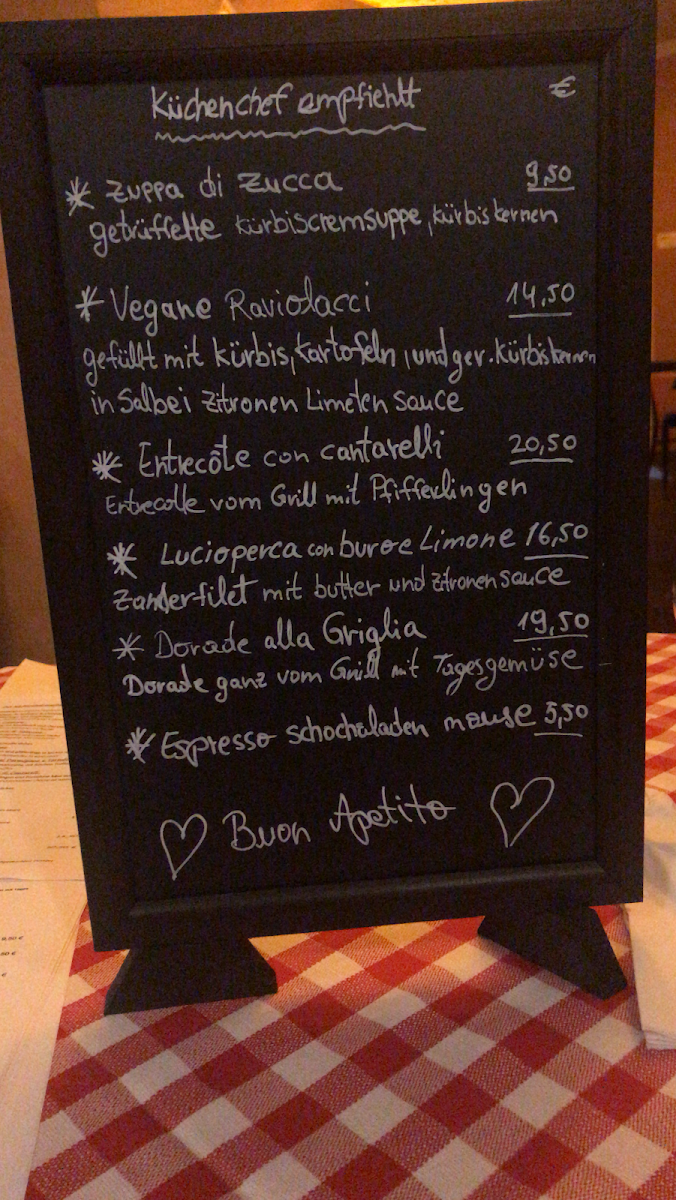 Küchenchef empfiehlt €
* Zuppa di Zucca 9,50
getrüffelte kürbiscremsuppe, kürbiskernen
* Vegane Raviolacci 14,50
gefüllt mit kürbis, kartofeln, und ger. kürbiskernen
in Salbei Zitronen Limeten Sauce
* Entrecôte con cantarelli 20,50
Entrecotte vom Grill mit Pfifferlingen
* Lucioperca con buroe Limone 16,50
Zanderfilet mit butter und zitronensauce
* Dorade alla Griglia 19,50
Dorade ganz vom Grill mit Tagesgemüse
* Espresso schochaladen mouse 5,50
♡ Buon Apetito ♡